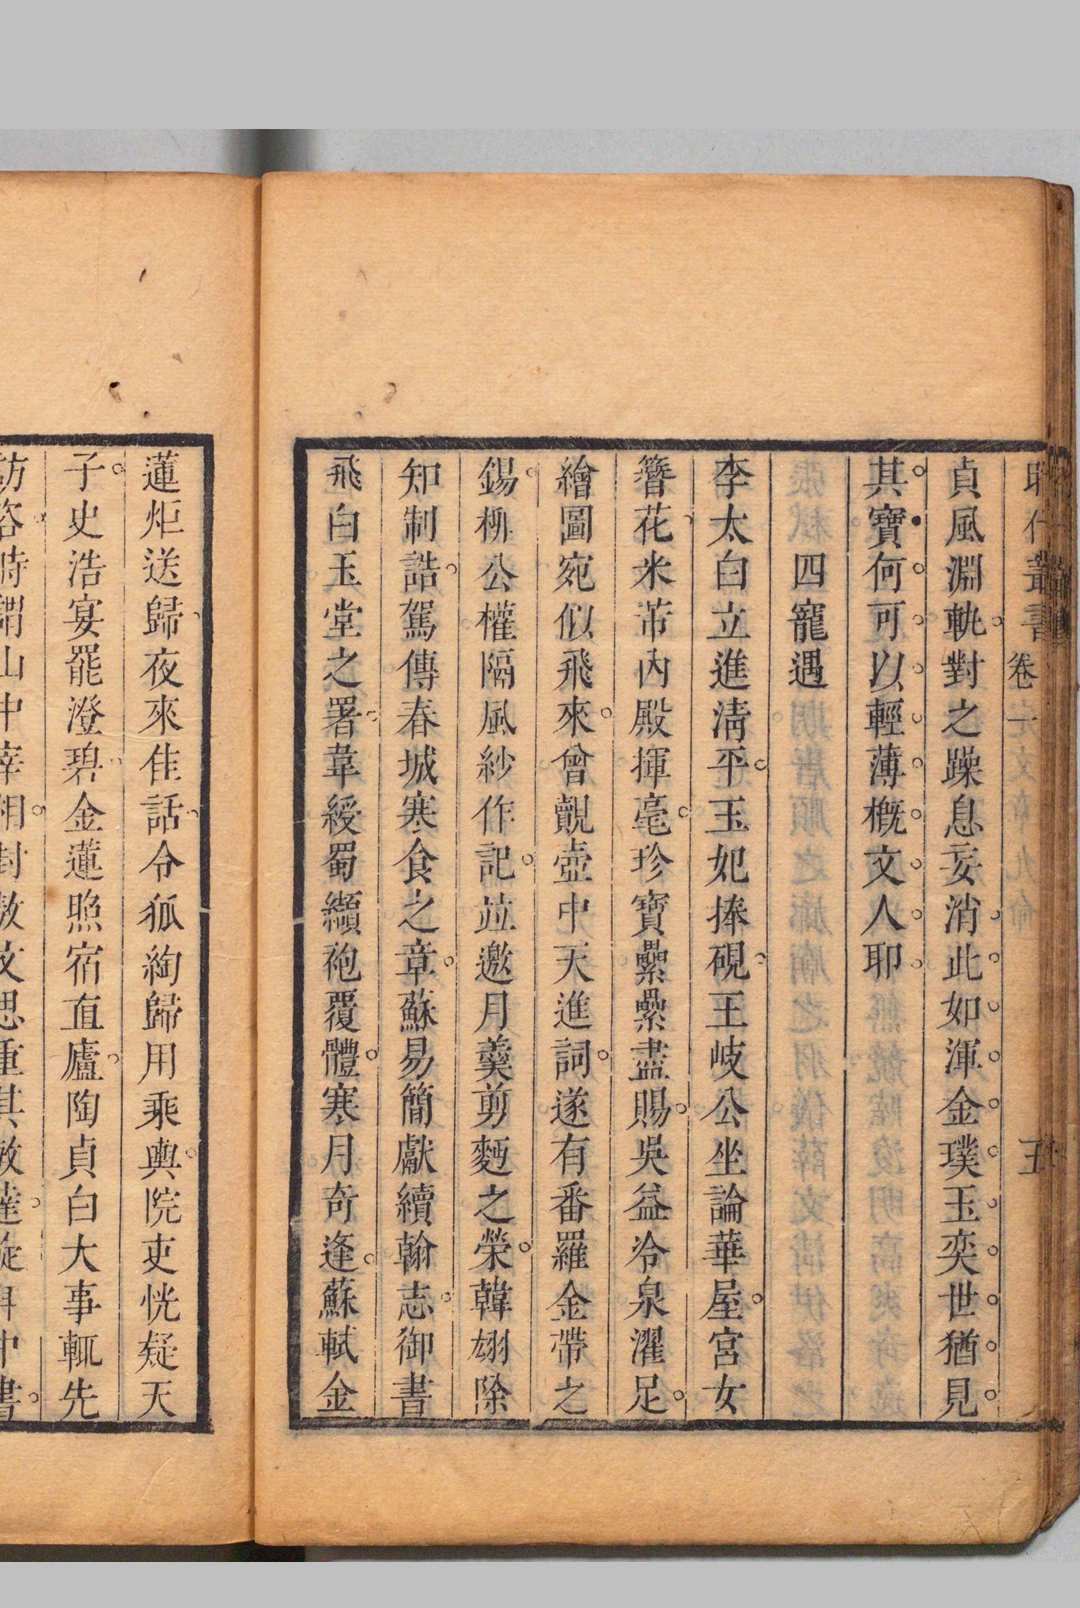 昭代叢書 卷一 文章九命 五
貞風淵軌對之躁息妄消此如渾金璞玉奕世猶見
其寶何可以輕薄槪文人耶
四寵遇
李太白立進淸平玉妃捧硯王岐公坐論華屋宮女
簪花米芾內殿揮毫珍寶纍纍盡賜吳益冷泉濯足
繪圖宛似飛來曾覿壺中天進詞遂有番羅金帶之
錫栁公權隔風紗作記竝邀月羹剪麪之榮韓翃除
知制誥駕傳春城寒食之章蘇易簡獻續翰志御書
飛白玉堂之署韋綬蜀纈袍覆體寒月奇逢蘇軾金
蓮炬送歸夜來佳話令狐綯歸用乘輿院吏恍疑天
子史浩宴罷澄碧金蓮照宿直廬陶貞白大事輒先
訪咨時謂山中宰相封敖文思重其敏達從中書